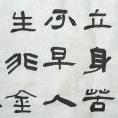 立身苦
不早人
生非金